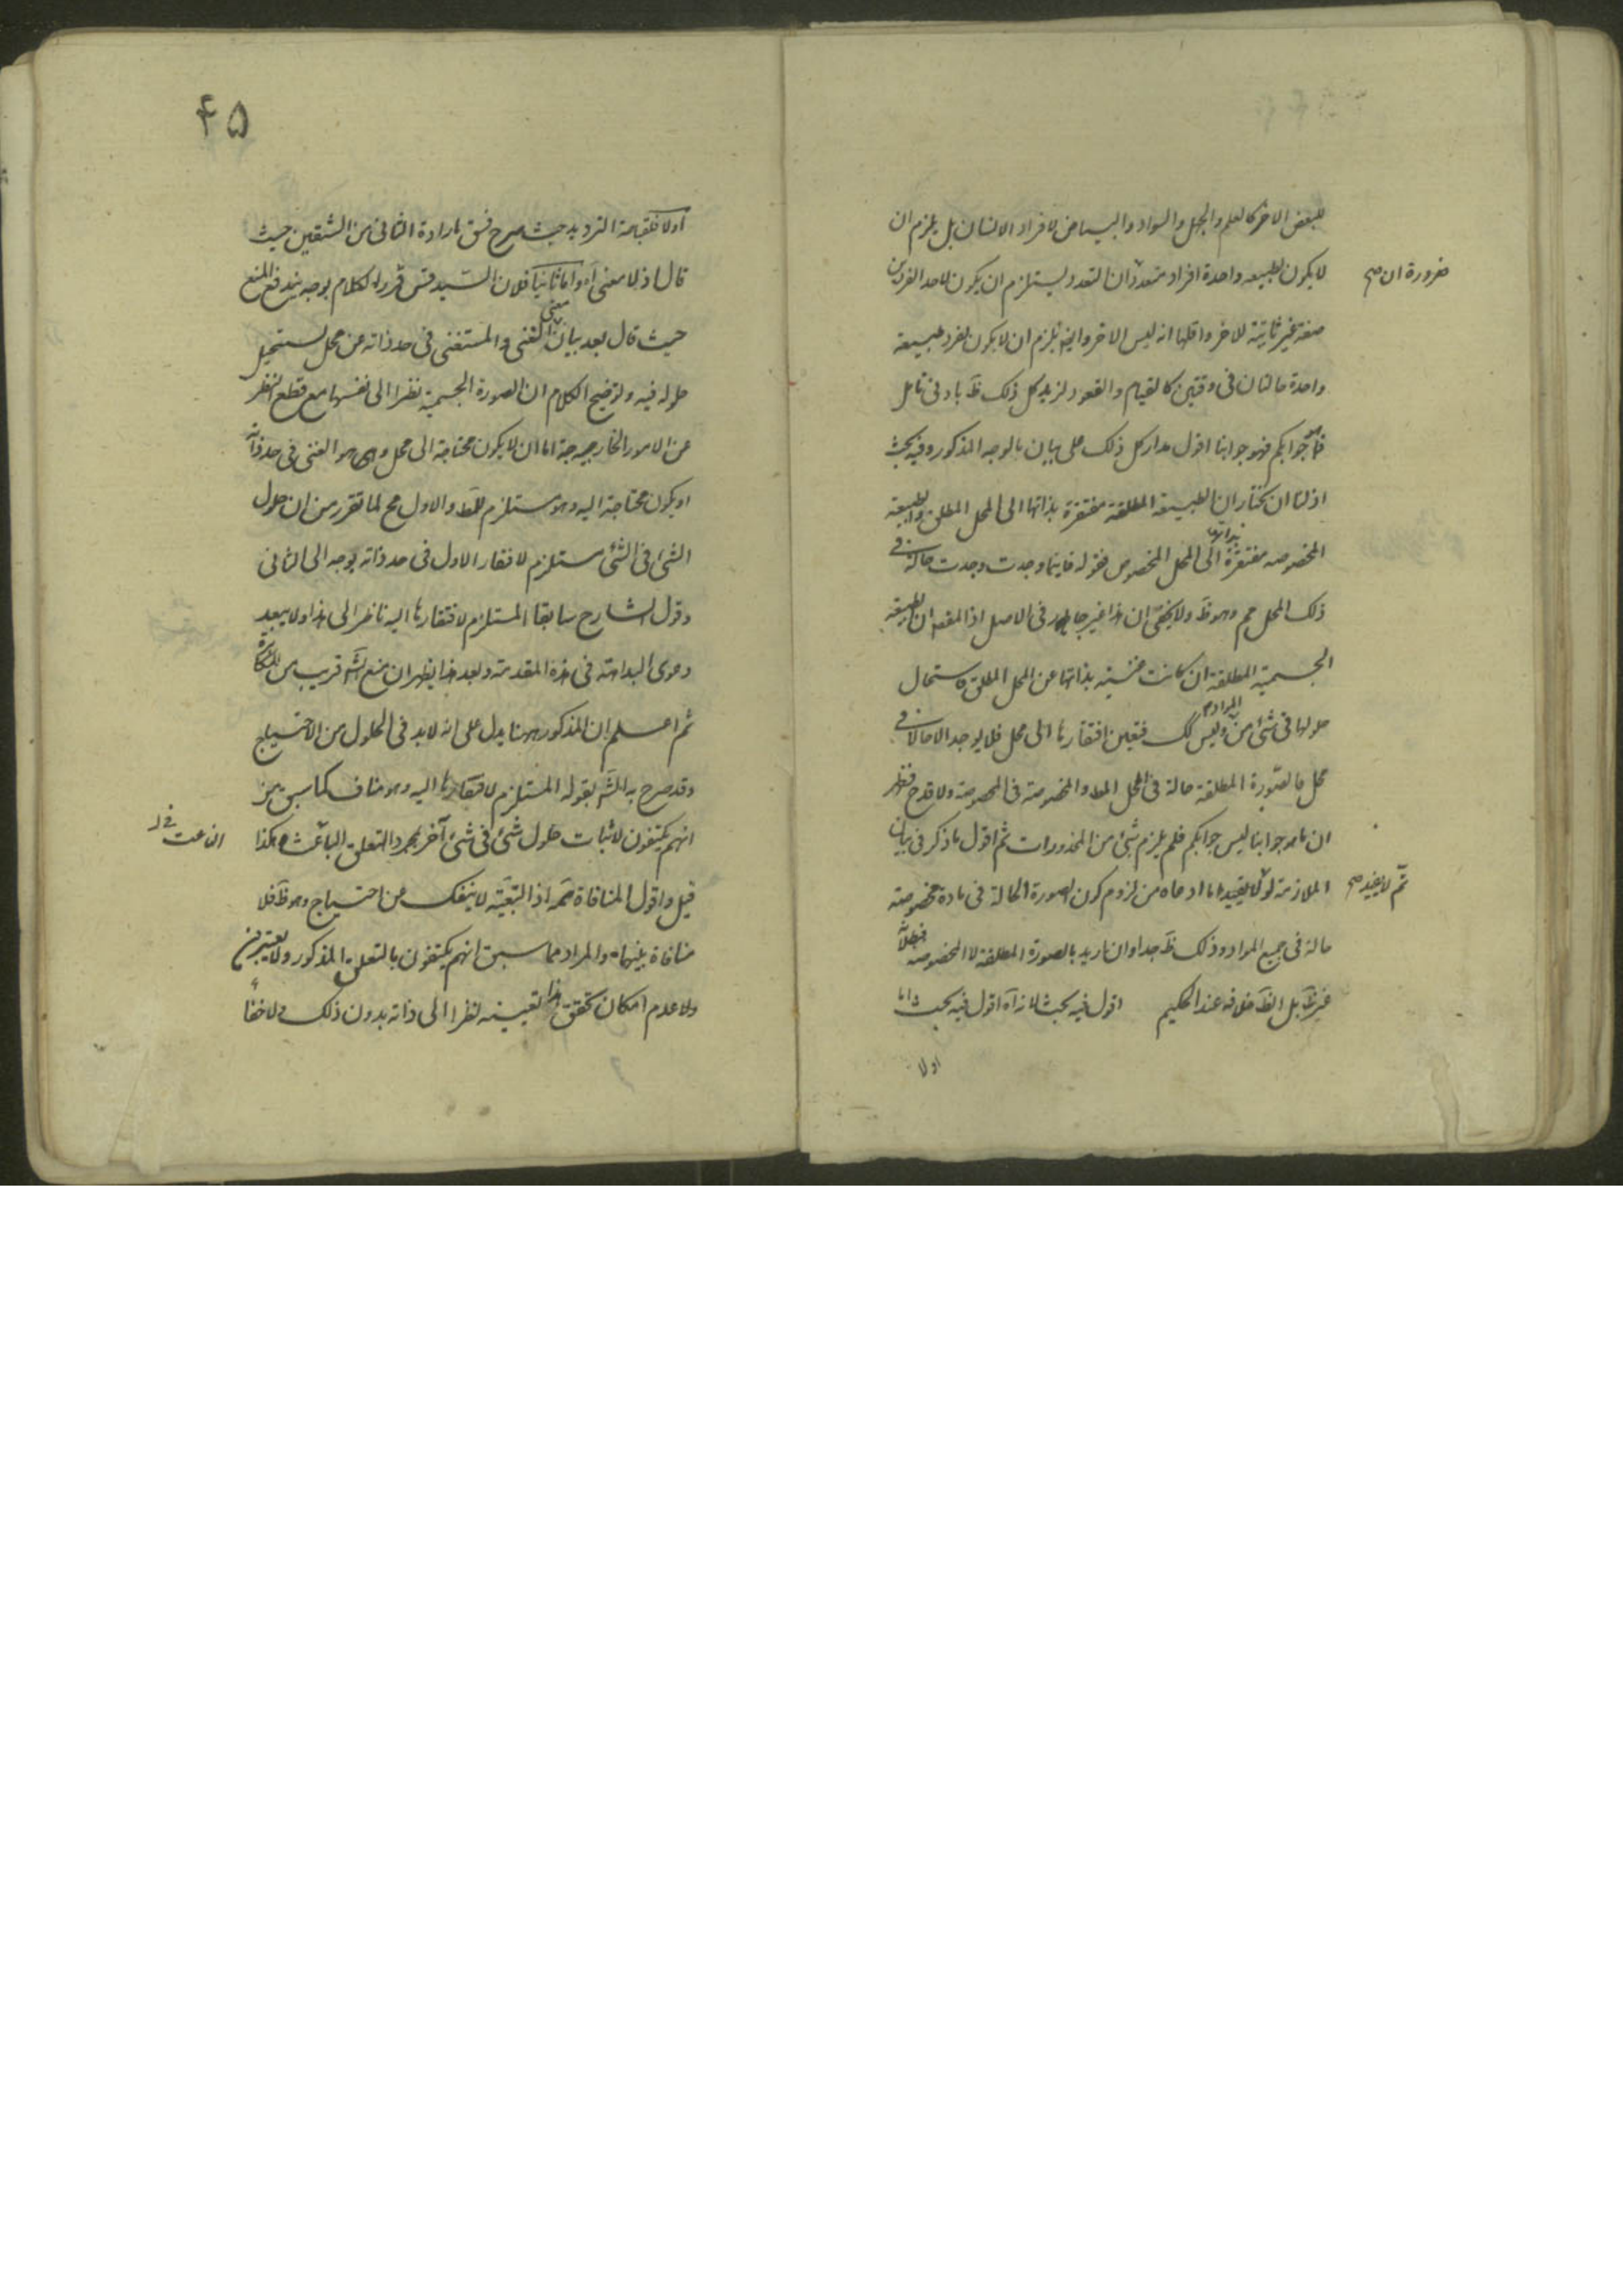 للبعض الاخر كالعلم والجهل والسواد والبياض لافراد الانسان بل يلزم ان
لا يكون لطبيعه واحدة افراد متعددة ان التعدد يستلزم ان يكون لاحد الفردين
ضرورة ان صح
صفة غير ثابتة للاخر واقلها انه ليس الاخر وايضا يلزم ان لا يكون لفرد طبيعة
واحدة حالتان فى وقتين كالقيام والقعود لزيد كل ذلك ظَ بادنى تامل
فما هو جوابكم فهو جوابنا اقول مدار كل ذلك على بيان بالوجه المذكور وفيه بحث
اذ لنا ان نختار ان الطبيعة المطلقة مفتقرة بذاتها الى المحل المطلق والطبيعة
المخصوصه مفتقرة بذاتها الى المحل المخصوص فقوله فاينما وجدت وجدت حالة فى
ذلك المحل مم وهو ظَ ولا يخفى ان هذا غير جار فى الاصل اذ المقصد ان الطبيعة
الجسمية المطلقة ان كانت غنية بذاتها عن المحل المطلق لاستحال
حلولها فى شئ من المواد وليس كك فتعين افتقارها الى محل فلا يوجد الا حالا فى
محل فالصورة المطلقة حالة فى المحل المط والمخصوصة فى المخصوصة ولا قدح فظهر
ان ما هو جوابنا ليس جوابكم فلم يلزم شئ من المحذورات ثم اقول ما ذكر فى بيان
الملازمة لو تم لا يفيد ما ادعاه من لزوم كون الصورة الحالة فى مادة مخصوصة
تم لا يفيد صح
حالة فى جميع المواد وذلك ظَ جدا وان اريد بالصورة المطلقة لا المخصوصه فبطلانه
غير ظَ بل الظَ خلافه عند الحكيم اقول فيه بحث لانه آه اقول فيه بحث اما
اولا
۴۵
اولا فلقباحة الترديد حيث صرح فسق بارادة الثانى من الشقين حيث
قال اذ لا معنى آه واما ثانيا فلان السيد قس قرر الكلام بوجه يندفع المنع
حيث قال بعد بيان معنى الغنى والمستغنى فى حد ذاته عن محل يستحيل
حلوله فيه وتوضيح الكلام ان الصورة الجسمية نظرا الى نفسها مع قطع النظر
عن الامور الخارجية اما ان لا يكون محتاجة الى محل وهو الغنى فى حد ذاته
او يكون محتاجة اليه وهو مستلزم للمط والاول مح لما تقرر من ان حلول
الشئ فى الشئ مستلزم لافتقار الاول فى حد ذاته بوجه الى الثانى
وقول الشارح سابقا المستلزم لافتقارها اليه ناظر الى هذا ولا يبعد
دعوى البداهة فى هذه المقدمة وبعد هذا يظهر ان منع الشَ قريب من المكابرة
ثم اعلم ان المذكور ههنا يدل على انه لابد فى الحلول من الاحتياج
وقد صرح به الشَ بقوله المستلزم لافتقارها اليه وهو مناف كما سبق من
انهم يكتفون لاثبات حلول شئ فى شئ آخر بمجرد التعلق الباعث هكذا
الناعت فى
قيل واقول المنافاة ممَ اذ التبعية لا ينفك عن احتياج وهو ظَ فلا
منافاة بينهما والمراد مما سبق انهم يكتفون بالتعلق المذكور ولا يعتبرون
ولا عدم امكان تحقق هذا بعينه نظرا الى ذاته بدون ذلك ولا خفاء